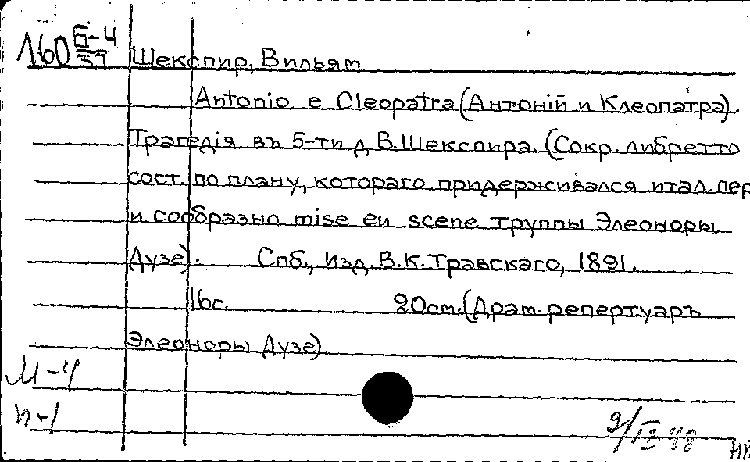 Шекспир, Вильям
Antonio e Cleopatra (Антоній и Клеопатра).
Трагедія въ 5-ти д. В. Шекспира. (Сокр. либретто
сост. по плану, котораго придерживался итал. пер
и сообразно mise en scene труппы Элеоноры
Дузе). Спб., изд. В.К. Травскаго, 1891.
16с. 20см. (Драм. репертуаръ
Элеоноры Дузе)
М-4
п-1